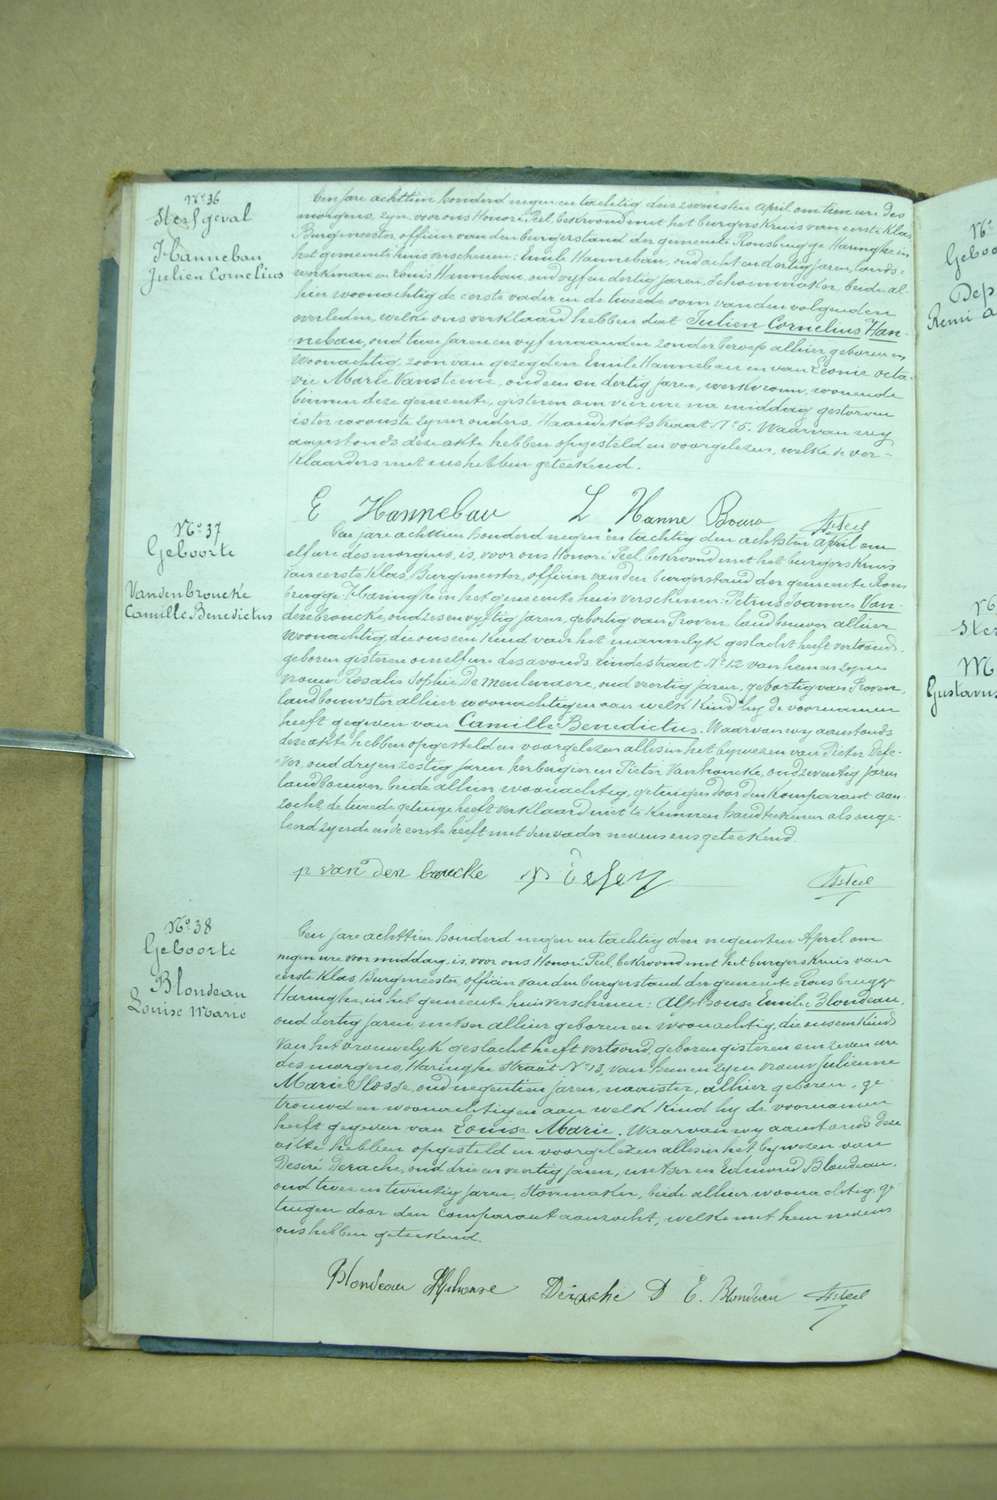 Nº 36
Sterfgeval
Hannebau
Julien Cornelius
Een jare achttien honderd negen en tachtig den zevensten April om tien ure des
morgens, zyn voor ons Honoré Peel, bekroond met het burgers Kruis van eerste Klas
Burgmeester, officier van den burgerstand der gemeente Rousbrugge Haringhe in
het gemeentehuis verschenen: Emile Hannebau, oud acht en dertig jaren, lands-
werkman en Louis Hannebau, oud vyf en dertig jaren, Schoenmaker, beide al-
hier woonachtig de eerste vader en de tweede oom van den volgenden
overleden, welke ons verklaard hebben dat Julien Cornelius Han-
nebau, oud twee jaren en vyf maanden zonder beroep alhier geboren en
woonachtig, zoon van gezegden Emile Hannebau en van Léonie octa-
vie Marie Vansteene, oud een en dertig jaren, werkvrouw, woonende
binnen deze gemeente, gisteren om vier ure na middag gestorven
is ter woonste zyner ouders, Haandekotstraat Nº 6. Waarvan wy
aanstonds deze akte hebben opgesteld en voorgelezen, welke de ver-
klaarders met ons hebben geteekend.
E Hannebau L Hanne Bouw HPeel
Nº 37
Geboorte
Vandenbroucke
Camille Benedictus
Een jare achttien honderd negen en tachtig den achtsten april om
elf ure des morgens, is, voor ons Honoré Peel, bekroond met het burgers Kruis
van eerste Klas, Burgmeester, officier van den burgerstand der gemeente Rous
brugge-Haringhe in het gemeentehuis verschenen: Petrus Joannes Van-
denbroucke, oud zes en vyftig jaren, geboortig van Proven, landbouwer alhier
woonachtig, die ons een kind van het mannelyk geslacht heeft vertoond,
geboren gisteren om elf ure des avonds, Lindestraat Nº 12 van hem en zyne
vrouw Rosalie Sophie De Meulenaere, oud veertig jaren, geboortig van Proven,
landbouwster alhier woonachtig en aan welk kind hy de voornamen
heeft gegeven van Camille Benedictus. Waarvan wy aanstonds
deze akte hebben opgesteld en voorgelezen alles in het bywezen van Pieter Defe-
ver, oud dry en zestig jaren herbergier en Pieter Vanhoucke, oud zeventig jaren
landbouwer, beide alhier woonachtig, getuigen door den komparant aan-
zocht, de tweede getuige heeft verklaard niet te kunnen handteekenen als onge-
leerd zynde en de eerste heeft met den vader nevens ons geteekend.
p van den broucke HPeel
Nº 38
Geboorte
Blondeau
Louise Marie
Een jare achttien honderd negen en tachtig den negensten April om
negen ure voor middag, is, voor ons Honoré Peel, bekroond met het burgers Kruis van
eerste Klas Burgmeester, officier van den burgerstand der gemeente Rousbrugge
Haringhe, in het gemeentehuis verschenen: Alphonse Emile Blondeau,
oud dertig jaren, metser alhier geboren en woonachtig, die ons een kind
van het vrouwelyk geslacht heeft vertoond, geboren gisteren om zeven ure
des morgens, Haringhe straat Nº 13, van hem en zyne vrouw Julienne
Marie Stosse, oud negentien jaren, naaister, alhier geboren, ge-
trouwd en woonachtig en aan welk kind hy de voornamen
heeft gegeven van Louise Marie. Waarvan wy aanstonds deze
akte hebben opgesteld en voorgelezen alles in het bywezen van
Desiré Derache, oud drie en veertig jaren, metser en Edmond Blondeau,
oud twee en twintig jaren, stoelmaker, beide alhier woonachtig, ge-
tuigen door den comparant aanzocht, welke met hem nevens
ons hebben geteekend.
Blondeau Alphonse Derache D E. Blondeau HPeel
Nº
Geboo
Dep
Remi a
Nº
Ster
M
Gustavus